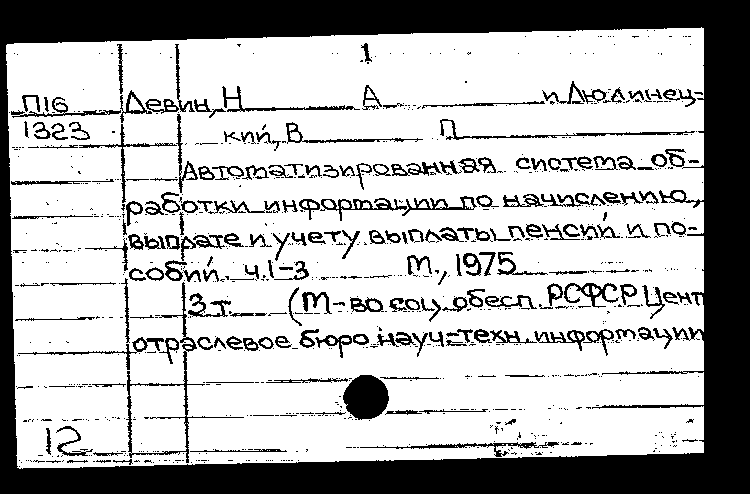 1
П16 Левин, Н А и Людинец-
1323 кий, В П
Автоматизированная система об-
работки информации по начислению,
выплате и учету выплаты пенсий и по-
собий. ч. 1-3 М., 1975
3 т. (М-во соц. обесп. РСФСР Цент
отраслевое бюро науч-техн. информации
12